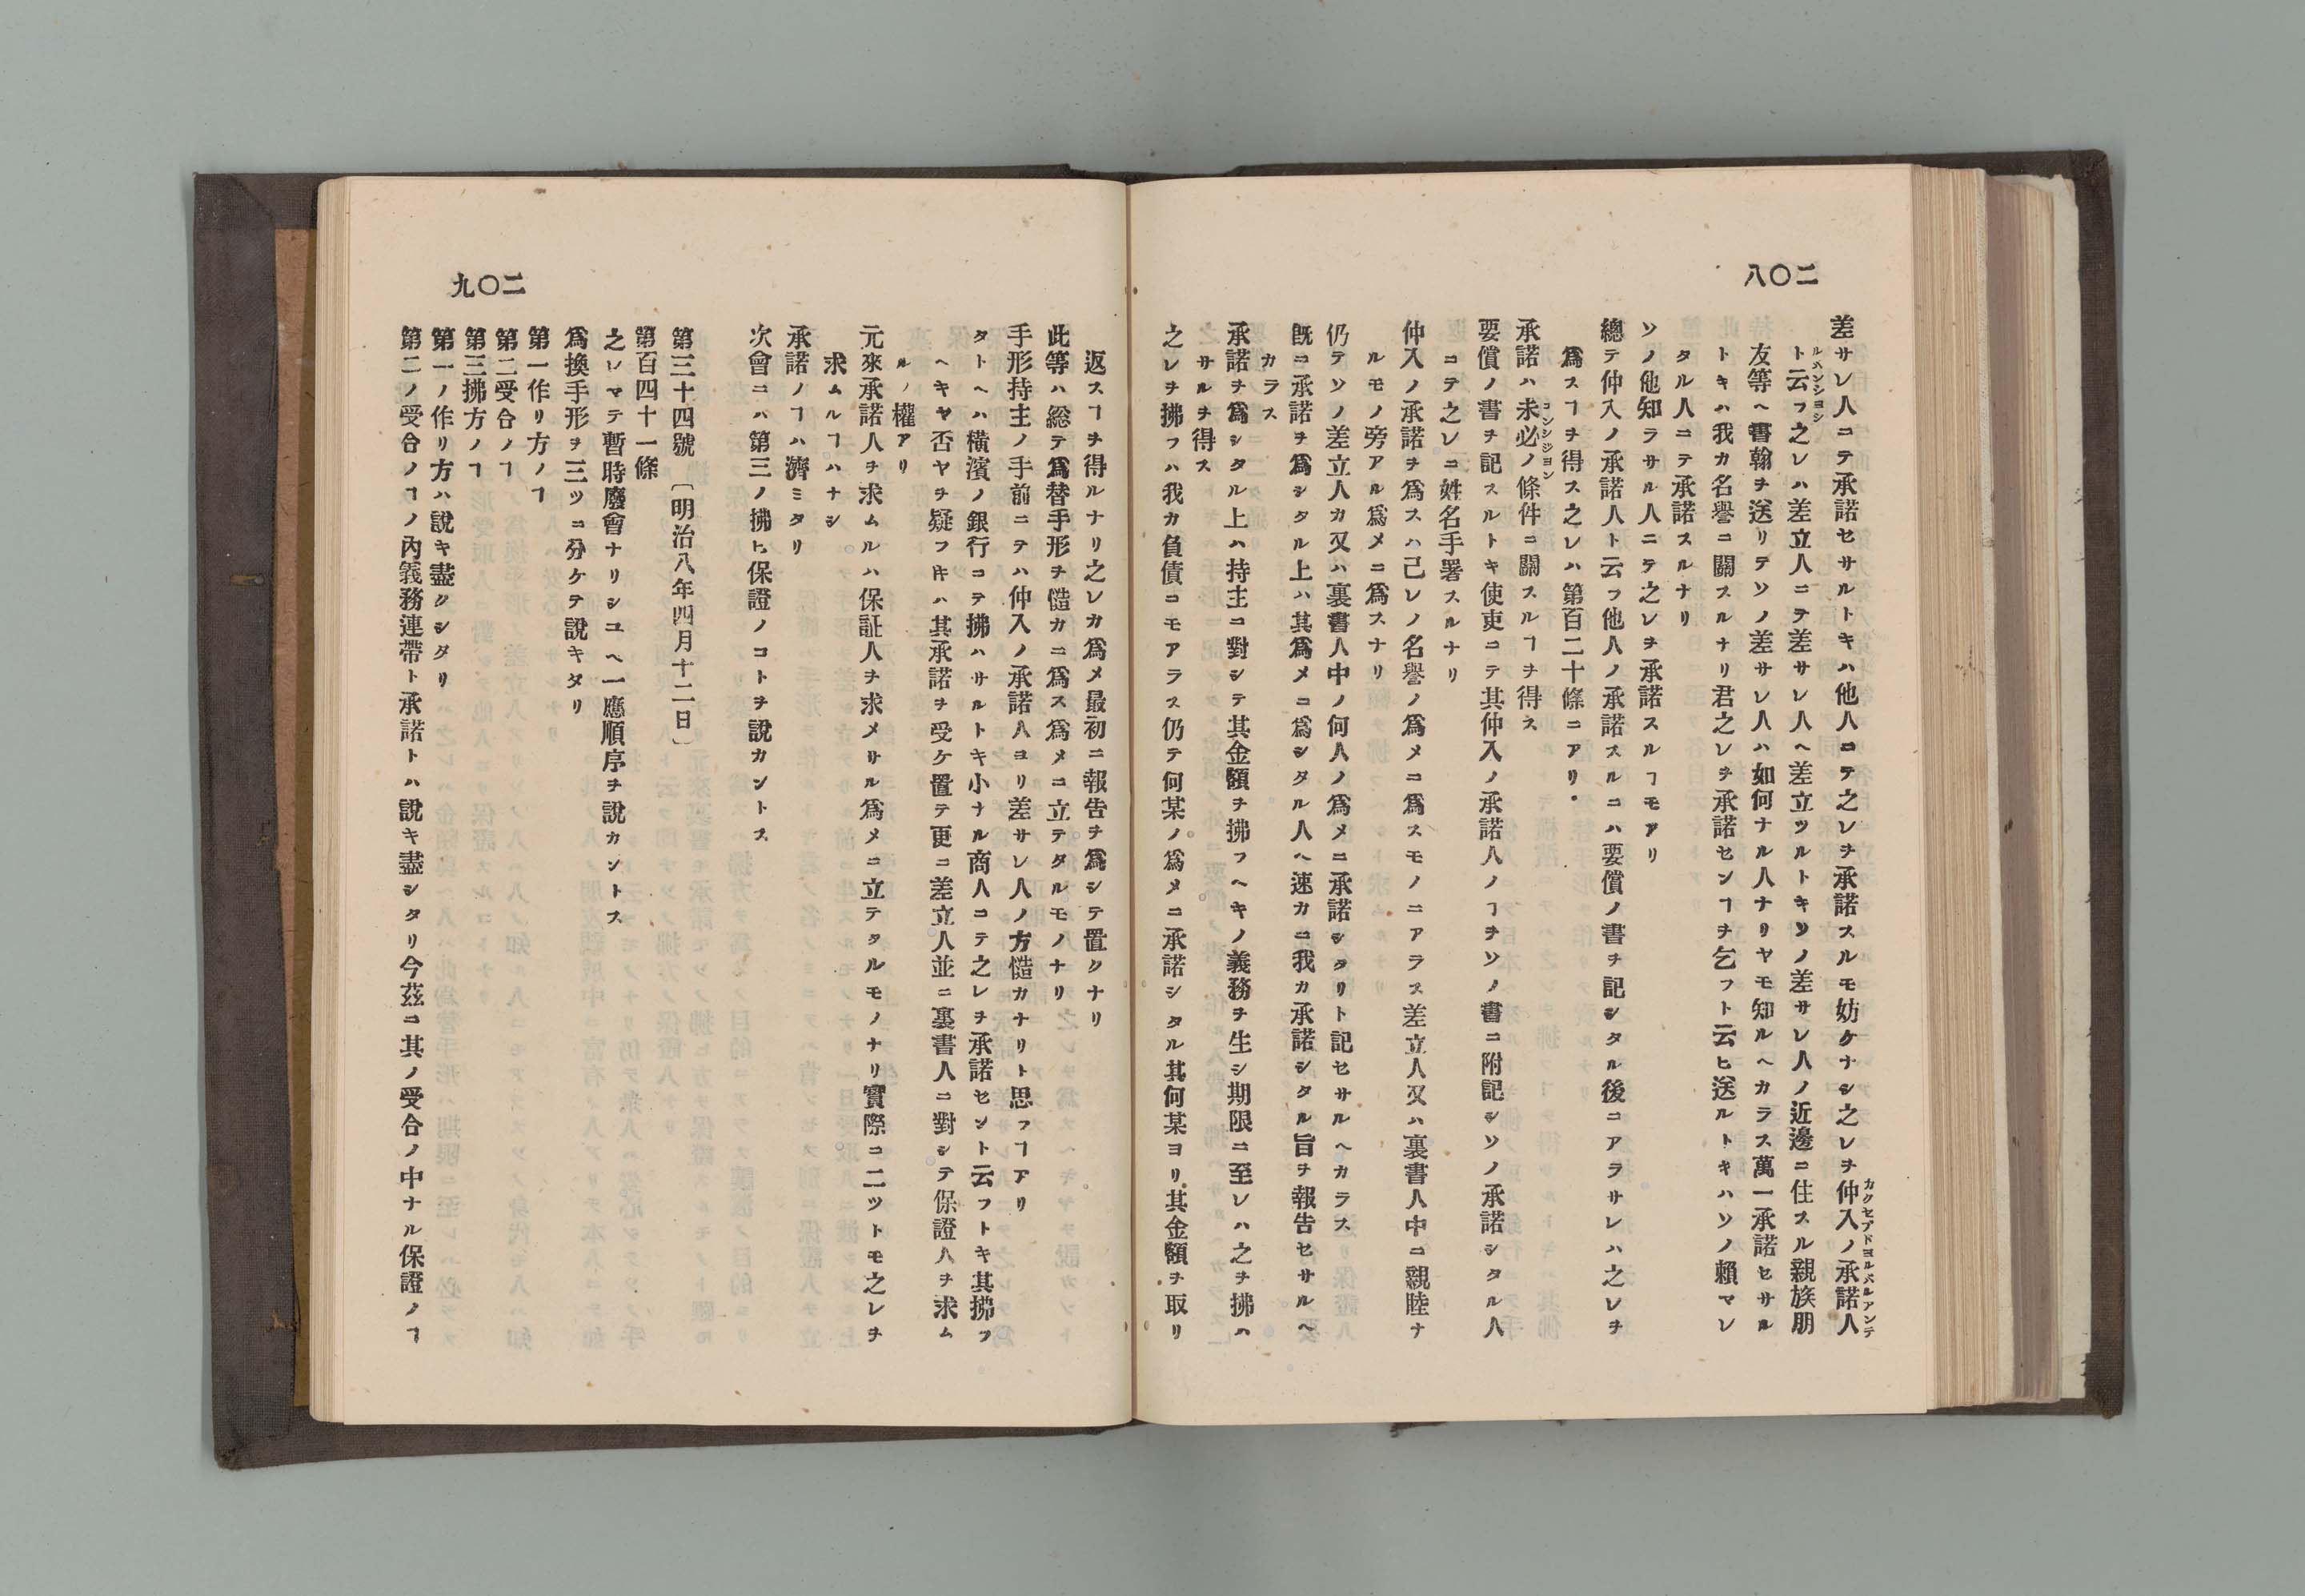 二〇八
差サレ人ニテ承諾セサルトキハ他人ニテ之レヲ承諾スルモ妨ケナシ之レヲ仲入ノ承諾人
カクセプドヨルパルアンテ
ルバンシヨン
ト云フ之レハ差立人ニテ差サレ人ヘ差立ツルトキソノ差サレ人ノ近邊ニ住スル親族朋
友等ヘ書翰ヲ送リテソノ差サレ人ハ如何ナル人ナリヤモ知ルヘカラス萬一承諾セサル
トキハ我カ名譽ニ關スルナリ君之レヲ承諾センヿヲ乞フト云ヒ送ルトキハソノ賴マレ
タル人ニテ承諾スルナリ
ソノ他知ラサル人ニテ之レヲ承諾スルヿモアリ
總テ仲入ノ承諾人ト云フ他人ノ承諾スルニハ要償ノ書ヲ記シタル後ニアラサレハ之レヲ
爲スヿヲ得ス之レハ第百二十條ニアリ
コンジジヨン
承諾ハ未必ノ條件ニ關スルヿヲ得ス
要償ノ書ヲ記スルトキ使吏ニテ其仲入ノ承諾人ノヿヲソノ書ニ附記シソノ承諾シタル人
ニテ之レニ姓名手署スルナリ
仲入ノ承諾ヲ爲スハ己レノ名譽ノ爲メニ爲スモノニアラス差立人又ハ裏書人中ニ親睦ナ
ルモノ旁アル爲メニ爲スナリ
仍テソノ差立人カ又ハ裏書人中ノ何人ノ爲メニ承諾シタリト記セサルヘカラス
既ニ承諾ヲ爲シタル上ハ其爲メニ爲シタル人ヘ速カニ我カ承諾シタル旨ヲ報告セサルヘ
カラス
承諾ヲ爲シタル上ハ持主ニ對シテ其金額ヲ拂フヘキノ義務ヲ生シ期限ニ至レハ之ヲ拂ハ
サルヲ得ス
之レヲ拂フハ我カ負債ニモアラス仍テ何某ノ爲メニ承諾シタル其何某ヨリ其金額ヲ取リ
二〇九
返スヿヲ得ルナリ之レカ爲メ最初ニ報告ヲ爲シテ置クナリ
此等ハ総テ爲替手形ヲ慥カニ爲ス爲メニ立テタルモノナリ
手形持主ノ手前ニテハ仲入ノ承諾人ヨリ差サレ人ノ方慥カナリト思フヿアリ
タトヘハ横濱ノ銀行ニテ拂ハサルトキ小ナル商人ニテ之レヲ承諾セント云フトキ其拂フ
ヘキヤ否ヤヲ疑フ𪜈ハ其承諾ヲ受ケ置テ更ニ差立人並ニ裏書人ニ對シテ保證人ヲ求ム
ルノ權アリ
元來承諾人ヲ求ムルハ保証人ヲ求メサル爲メニ立テタルモノナリ實際ニ二ツトモ之レヲ
求ムルヿハナシ
承諾ノヿハ濟ミタリ
次會ニハ第三ノ拂ヒ保證ノコトヲ說カントス
第三十四號 〔明治八年四月十二日〕
第百四十一條
之レマテ暫時廢會ナリシユヘ一應順序ヲ說カントス
爲換手形ヲ三ツニ分ケテ說キタリ
第一作リ方ノヿ
第二受合ノヿ
第三拂方ノヿ
第一ノ作リ方ハ說キ盡クシタリ
第二ノ受合ノヿノ內義務連帶ト承諾トハ說キ盡シタリ今茲ニ其ノ受合ノ中ナル保證ノヿ